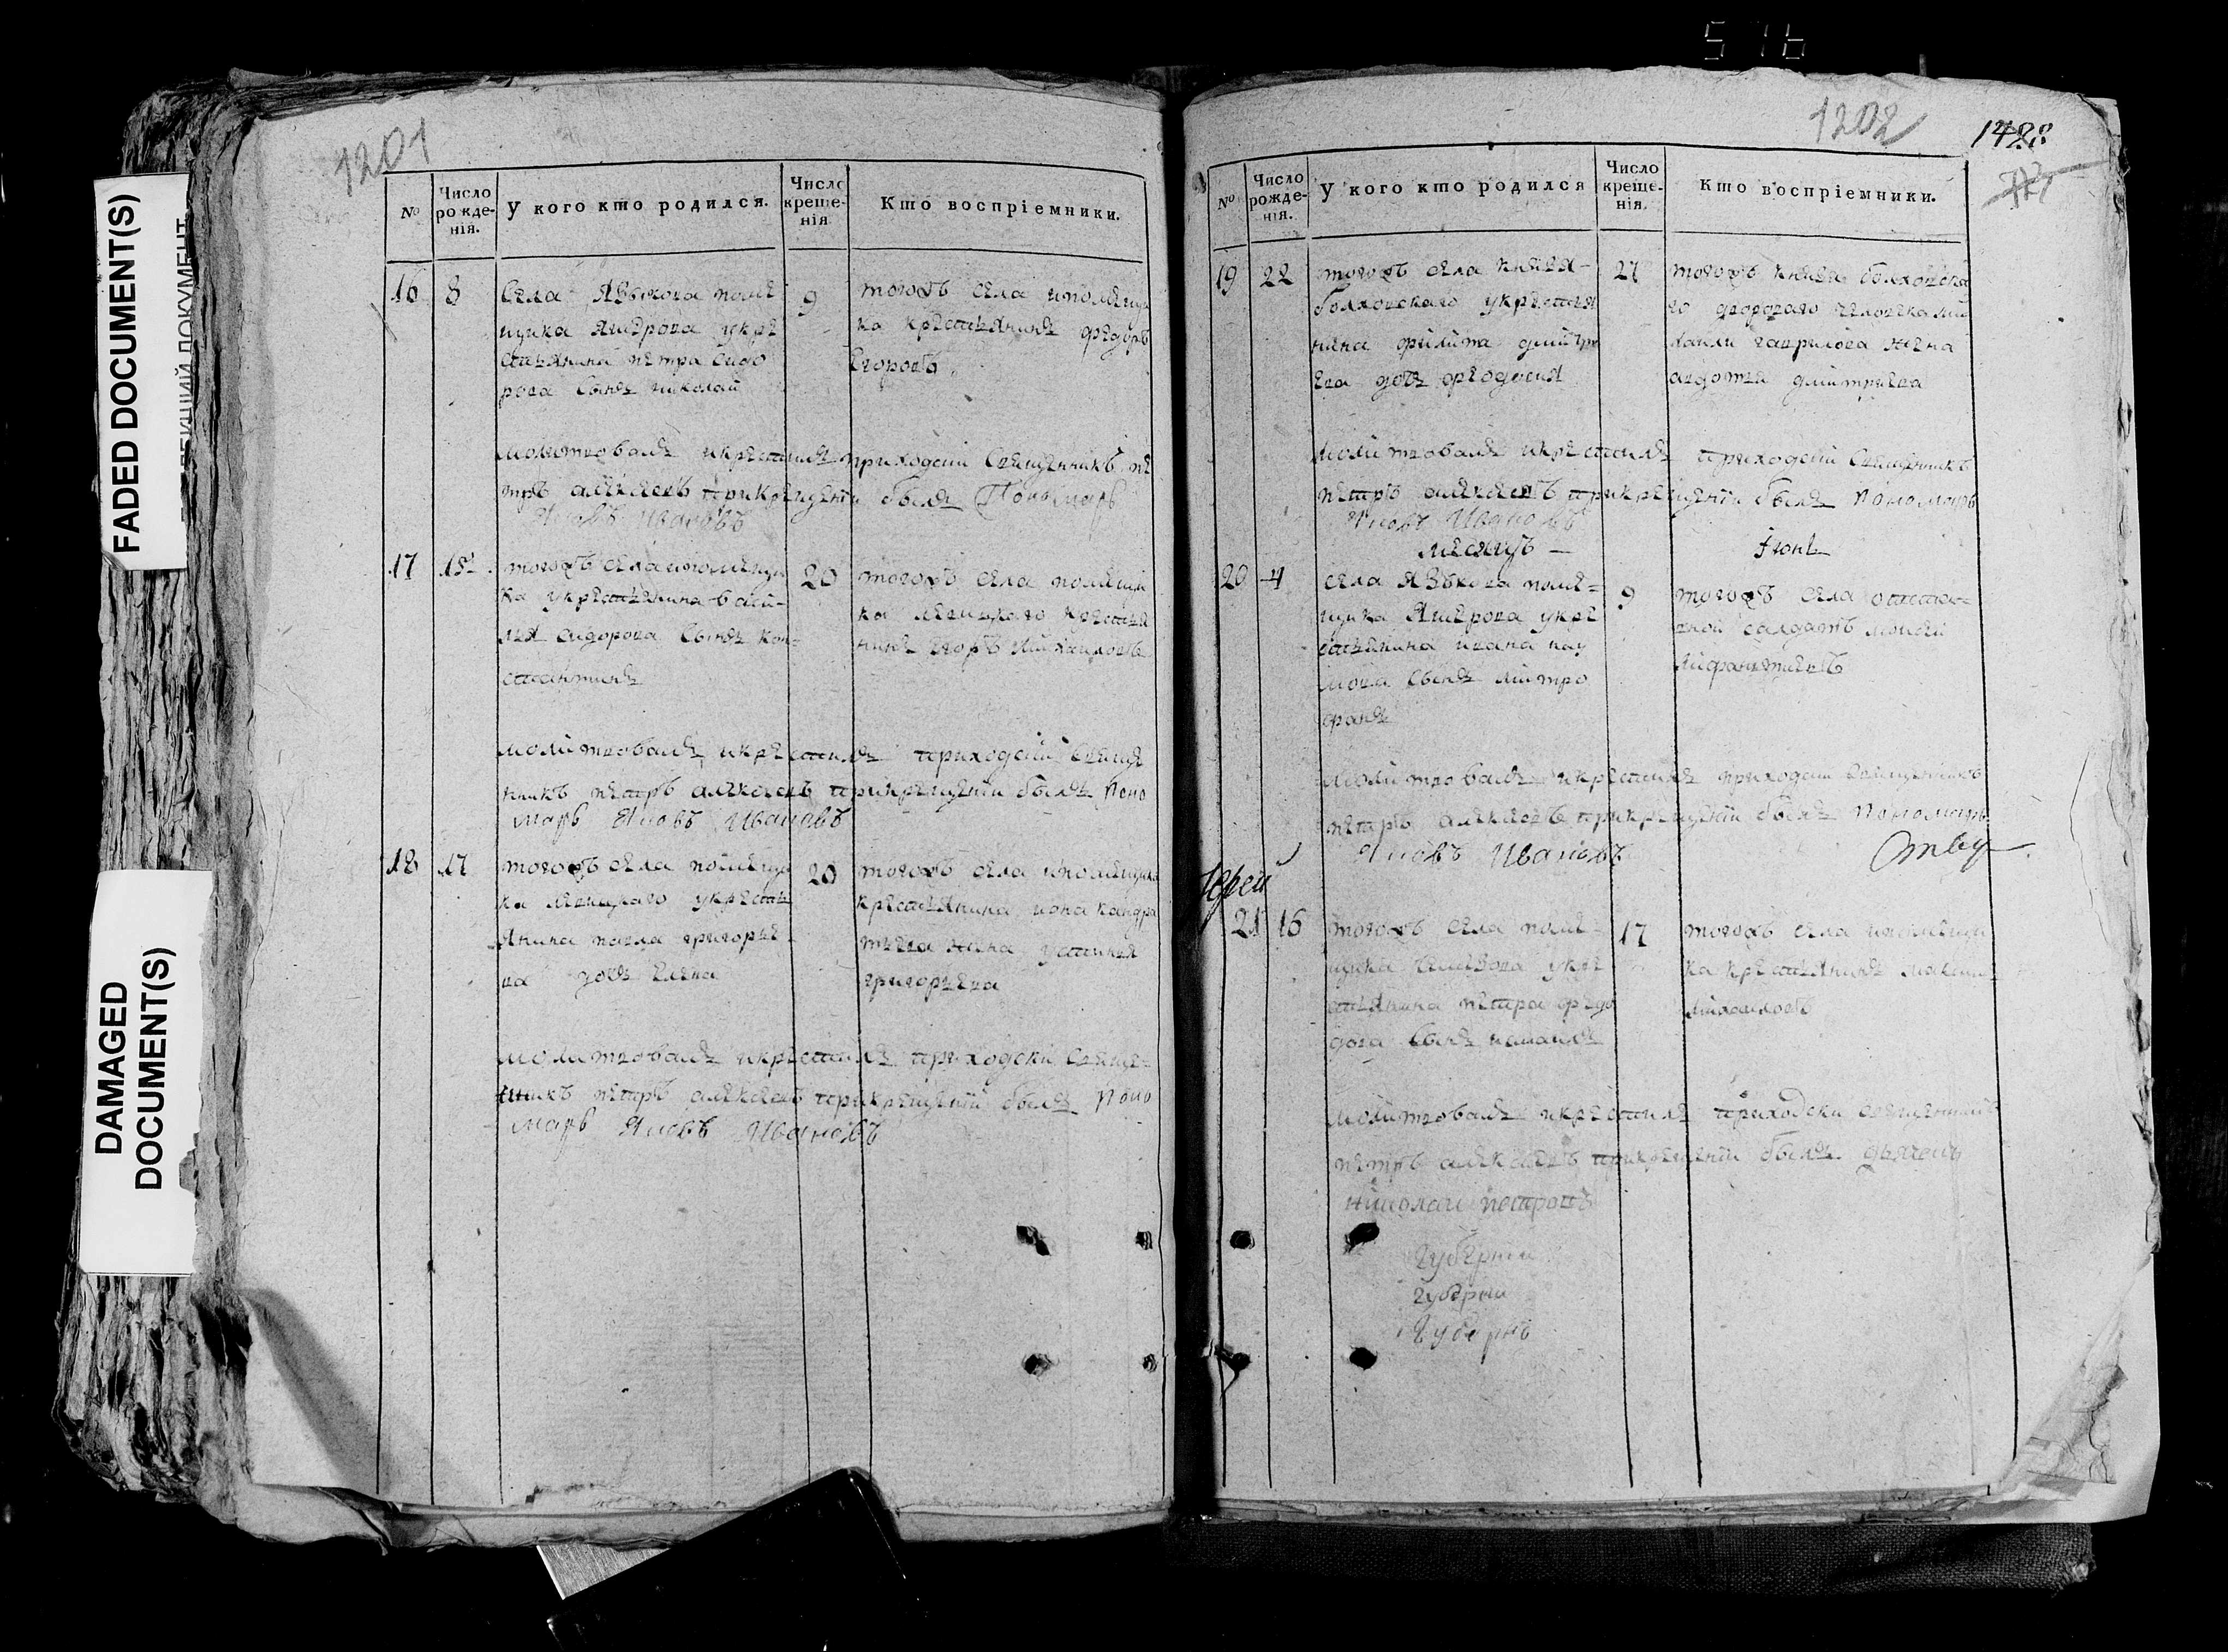 576
1201
№
Число рожденія.
У кого кто родился.
Число крещенія
Кто воспріемники.
16
8
Села Языкова поме
щика Яшерова укре
стьянина петра сидо
рова сынъ николай
9
тогожъ села ипомещи
ка крестьянинъ федоръ
Егоровъ
молитвовалъ икрестилъ приходскій Священникъ пе
тръ алексеевъ прикрещеніи былъ Пономарь
Яковъ Ивановъ
17
15
тогожъ села ипомещи
ка укрестьянина васи-
лья сидорова сынъ кон-
стантинъ
20
тогожъ села помещи
ка крестья
нинъ егоръ Михаиловъ
молитвовалъ икрестилъ приходскій Свяще
нникъ петръ алексеевъ прикрещеніи былъ Поно
марь Яковъ Ивановъ
18
17
тогожъ села помещи
ка укресть
янина павла григорье
ва дочь Елена
20
тогожъ села ипомещика
крестьянина иона кандра
тьева жена устинья
григорьева
молитвовалъ икрестилъ приходски Свяще-
нникъ петръ алексеевъ прикрещеніи былъ Поно
марь Яковъ Ивановъ
1202
1428
№
Число рожденія.
У кого кто родился
Число крещенія.
Кто воспріемники.
19
22
тогожъ села князя-
болховскаго укрестья
нина филипа дмитри
ева дочь феодосия
27
тогожъ князя болховска
го двороваго человека ми
хаилы гаврилова жена
авдотья дмитриева
Молитвовалъ икрестилъ приходскій Священникъ
петръ алексеевъ прикрещеніи былъ Пономарь
Яковъ Ивановъ
месяцъ — Iюнь
20
4
села Языкова поме-
щика Яшерова укре
стьянина ивана нау
мова сынъ митро
фанъ
9
тогожъ села отстав-
ной салдатъ моисей
молитвовалъ икрестилъ приходски Священникъ
петръ алексеевъ прикрещеніи былъ Пономарь
Яковъ Ивановъ
Iерей
21
16
тогожъ села поме-
щика укре
стьянина петра федо
дова сынъ
17
тогожъ села ипомещи
ка крестьянинъ максимъ
Михаиловъ
молитвовалъ икрестилъ приходски священникъ
петръ алексеевъ прикрещеніи былъ дьячекъ
Николай петровъ
Губернии
губерни
Губернъ
FADED DOCUMENT(S)
DAMAGED
DOCUMENT(S)